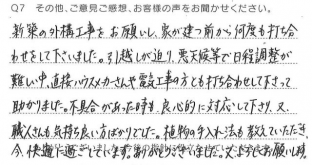 Q7 その他、ご意見ご感想、お客様の声をお聞かせください。
新築の外構工事をお願いし、家が建つ前から何度も打ち合
わせをして下さいました。引越しが迫り、悪天候等で日程調整が
難しい中、直接ハウスメーカーさんや電気工事の方とも打ち合わせして下さって
助かりました。不具合があった時も、良心的に対応して下さり、又、
職人さんも気持ち良い方ばかりでした。植物の手入れ法も教えていただき、
今、快適に過ごしています。ありがとうございました。